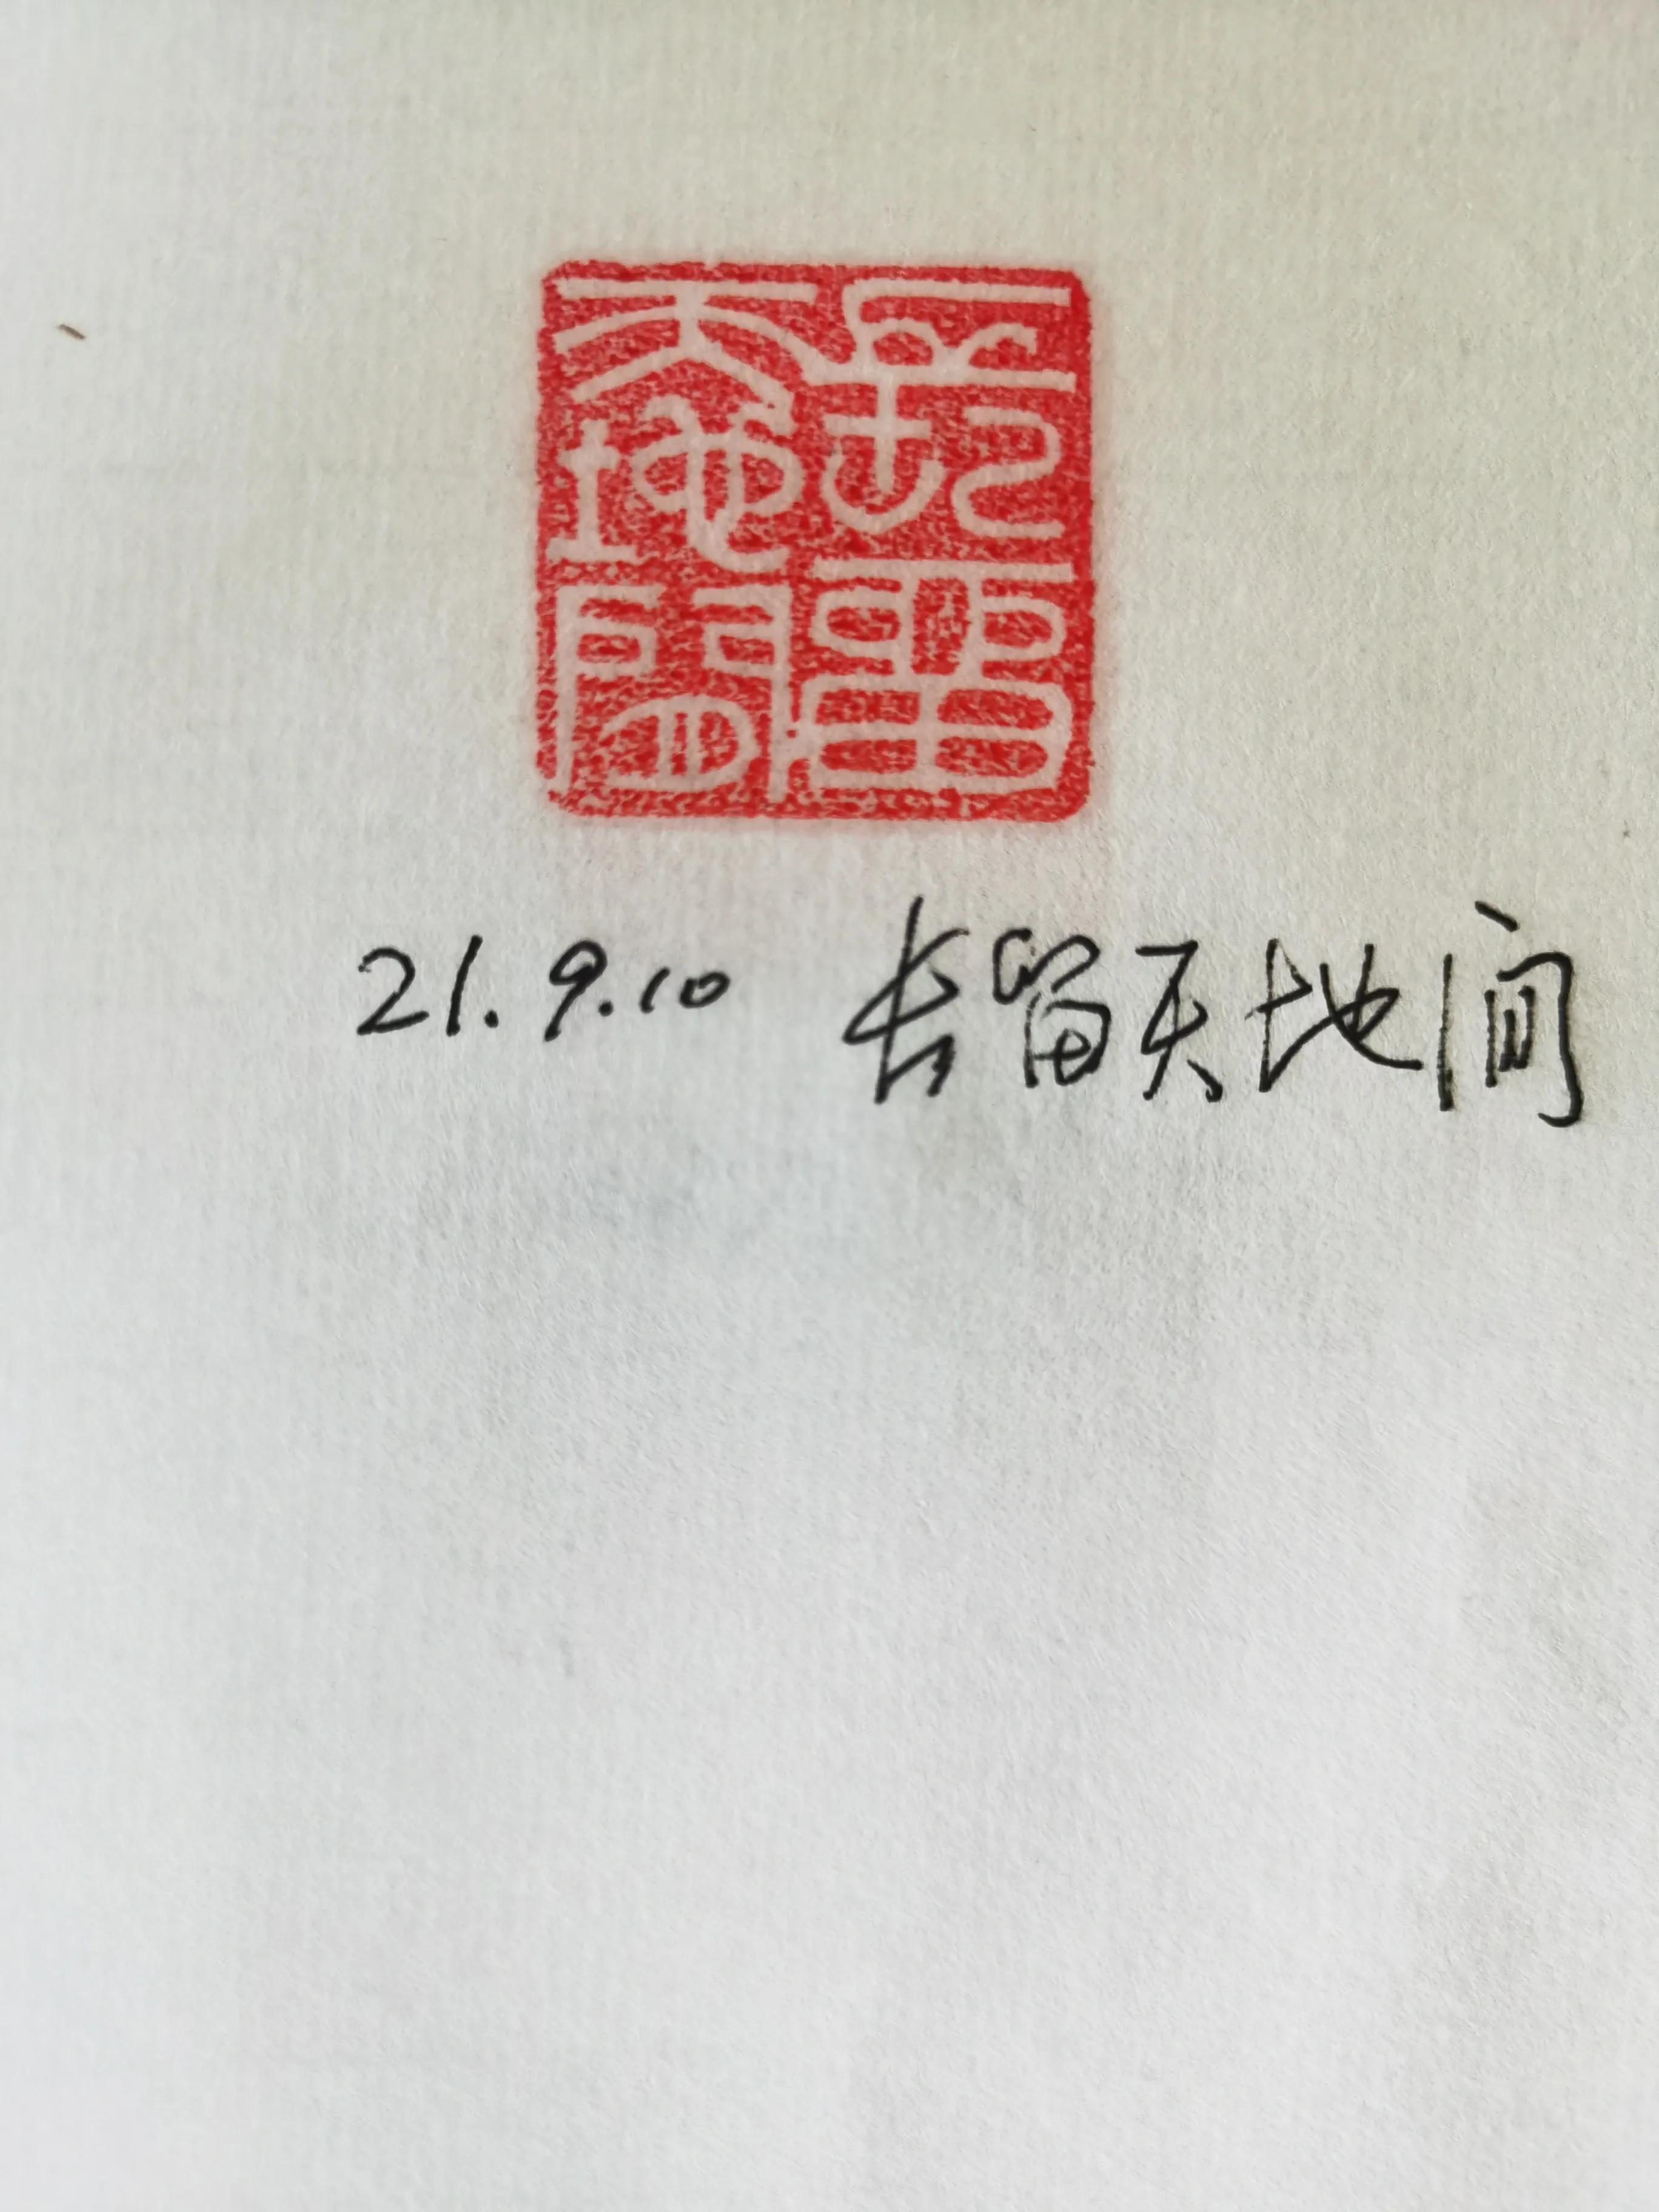 長留
天地間
21.9.10 长留天地间